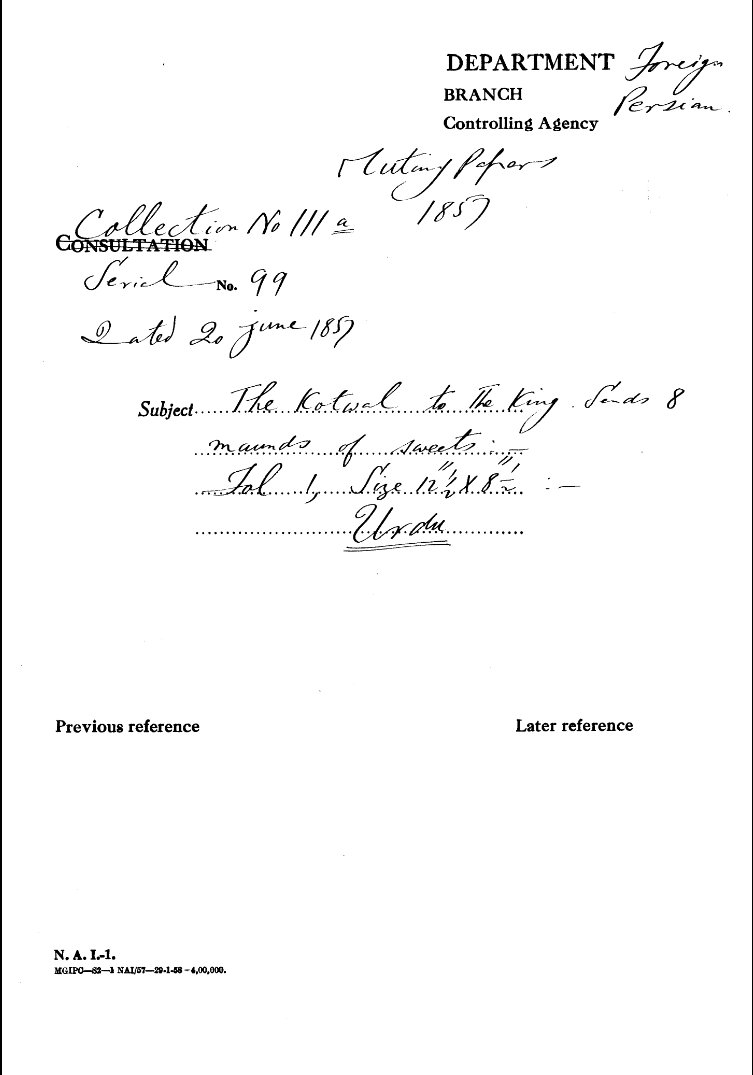 DEPARTMENT Foreign
BRANCH Persian.
Controlling Agency
Mutiny Papers
1857
Collection No III a
CONSULTATION
Serial No. 99
Dated 20 june 1857
Subject The Kotwal to The King. Sends 8
maunds of sweets :—
Fol 1, Size 12½" X 8½" :—
Urdu
Previous reference Later reference
N. A. I.-1.
MGIPC—S2—1 NAI/57—29-1-58—4,00,000.